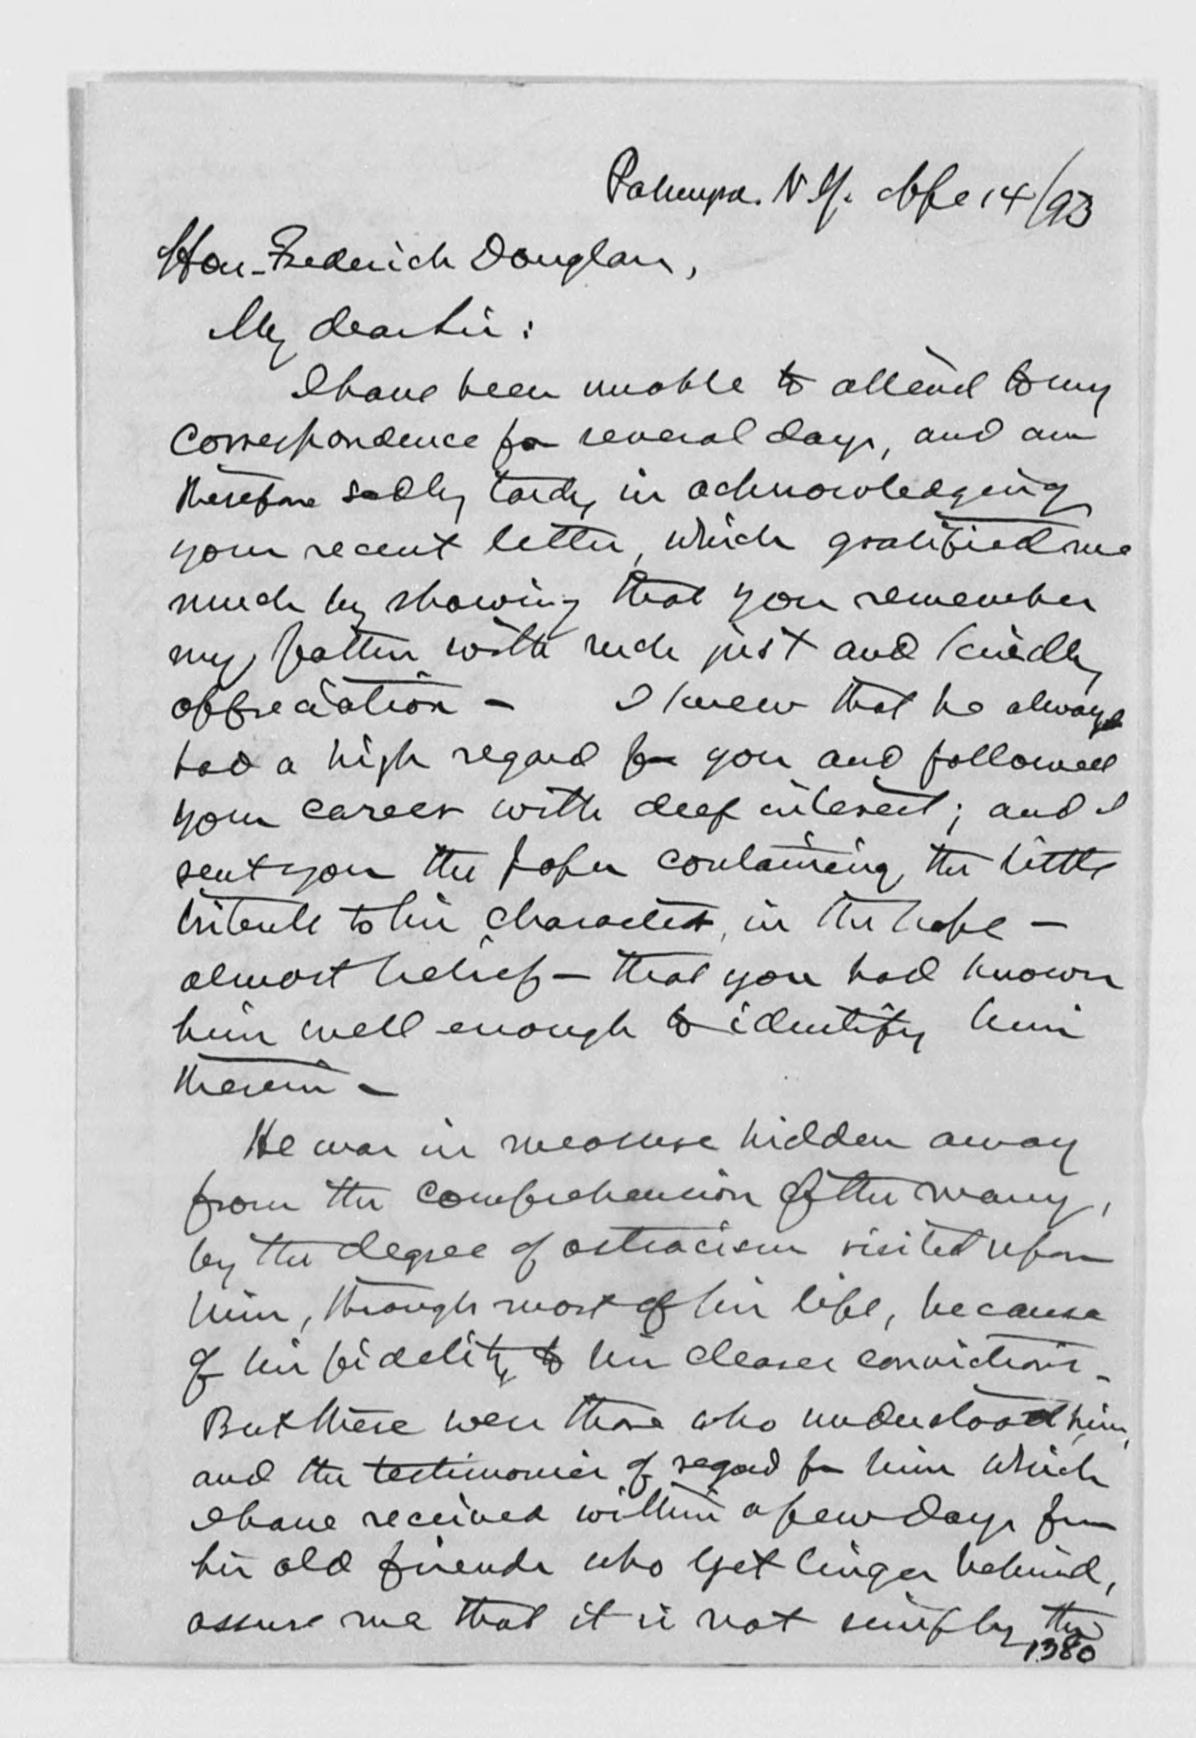 Palmyra. N.Y. Apl 14/93
Hon. Frederick Douglass,
My dear Sir:
I have been unable to attend to my
correspondence for several days, and am
therefore sadly tardy in acknowledging
your recent letter, which gratified me
much by showing that you remember
my father with such just and kindly
appreciation - I knew that he always
had a high regard for you and followed
your career with deep interest; and I
sent you the paper containing the little
tribute to his character, in the hope -
almost belief - that you had known
him well enough to identify him
therein -
He was in measure hidden away
from the comprehension of the many,
by the degree of ostracism visited upon
him, through most of his life, because
of his fidelity to his clearer convictions -
But there were those who understood him,
and the testimonies of regard for him which
I have received within a few days from
his old friends who yet linger behind,
assure me that it is not simply the
1380